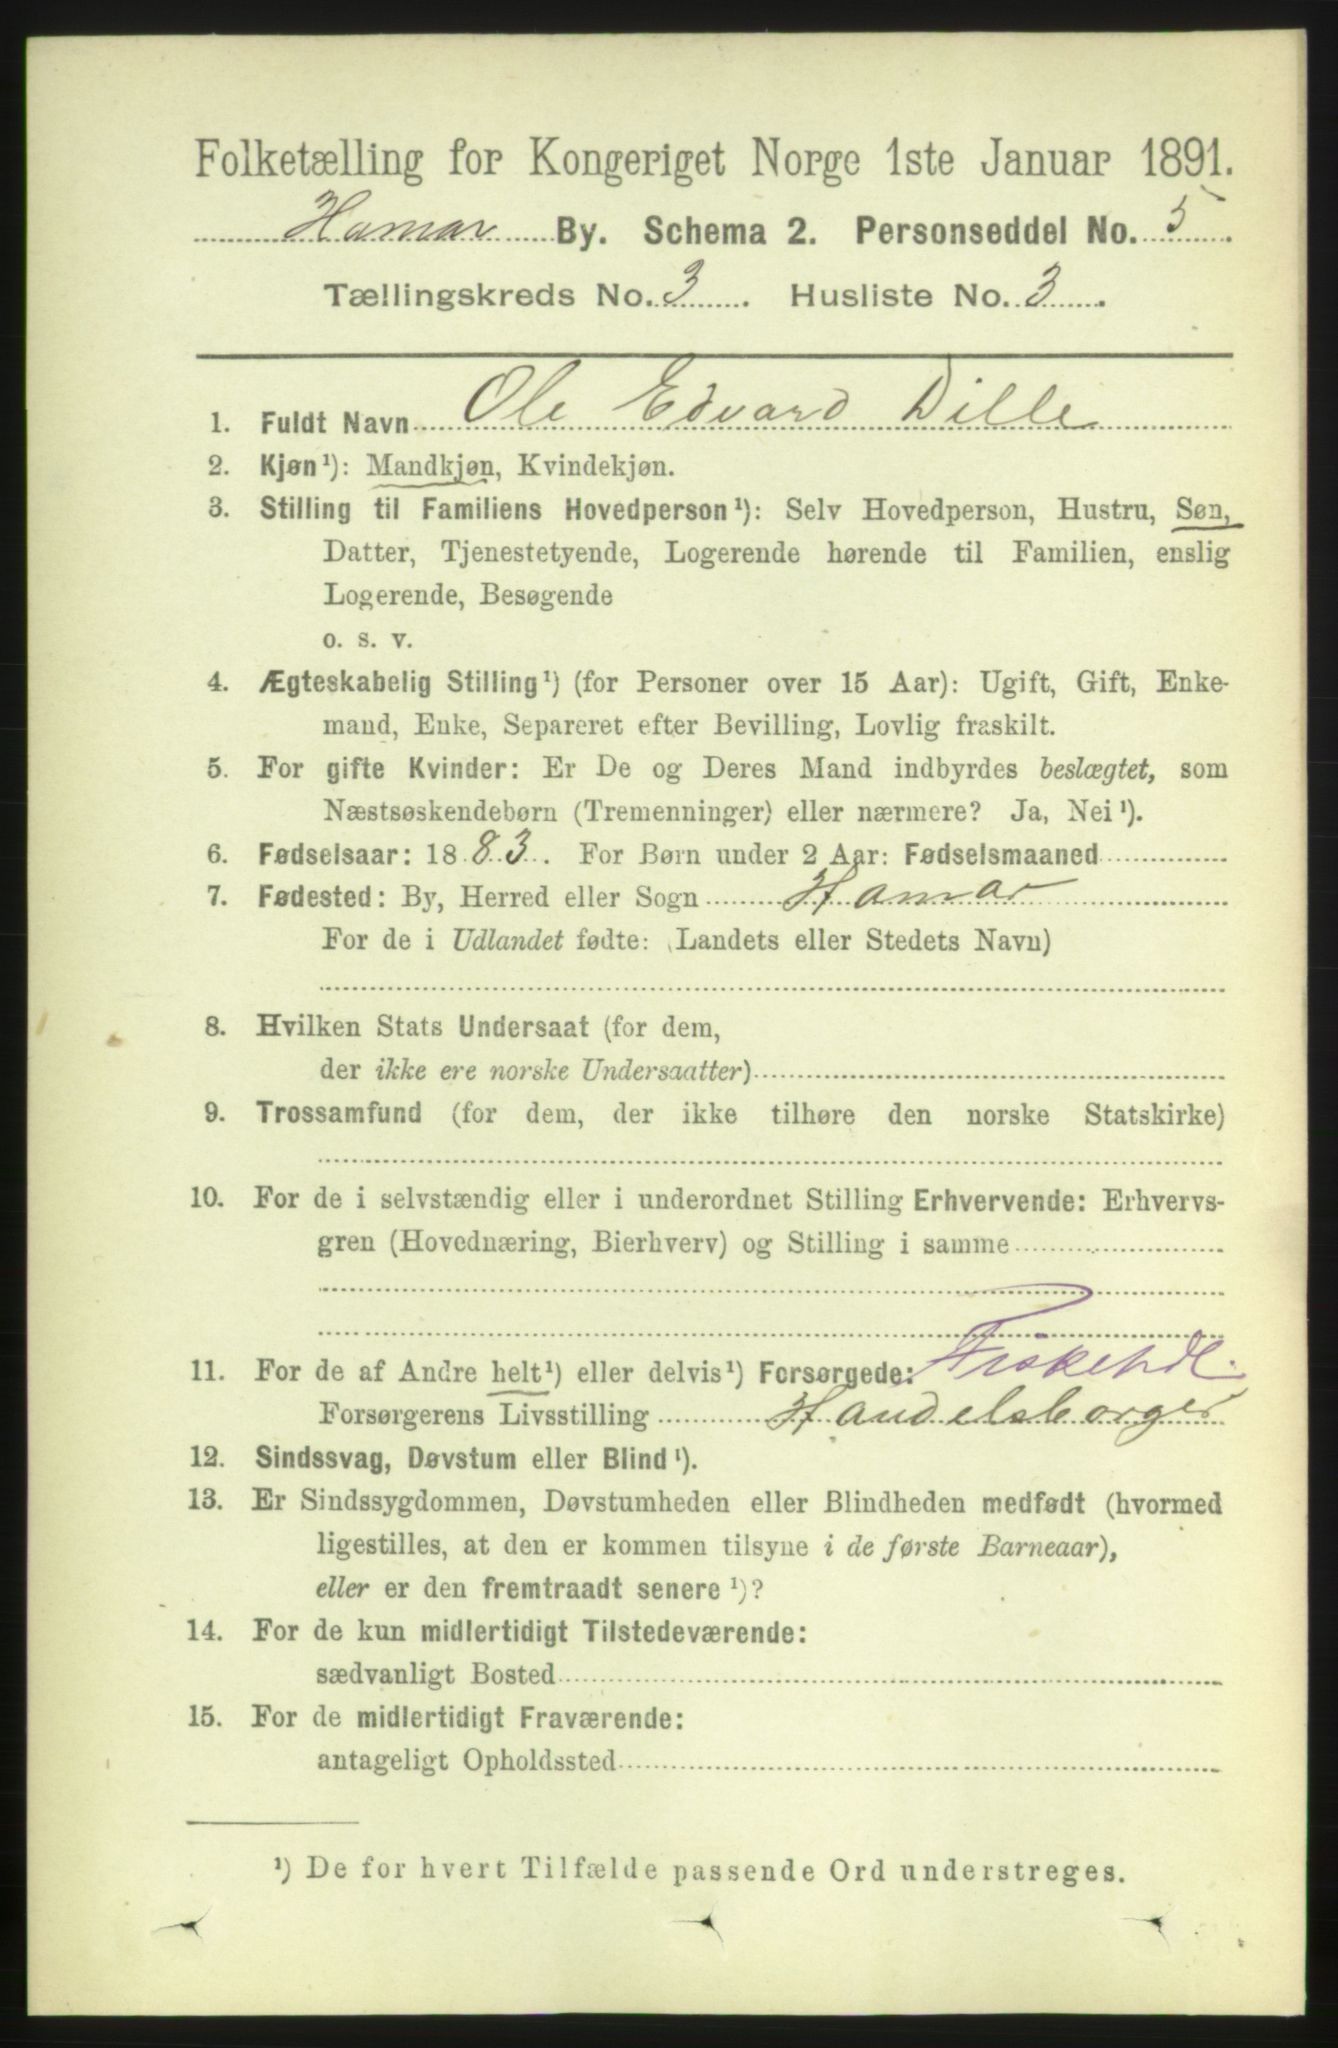 Folketælling for Kongeriget Norge 1ste Januar 1891.
Hamar By. Schema 2. Personseddel No. 5.
Tællingskreds No. 3. Husliste No. 3.
1. Fuldt Navn Ole Edvard Dille
2. Kjøn¹): Mandkjøn, Kvindekjøn.
3. Stilling til Familiens Hovedperson¹): Selv Hovedperson, Hustru, Søn,
Datter, Tjenestetyende, Logerende hørende til Familien, enslig
Logerende, Besøgende
o. s. v.
4. Ægteskabelig Stilling¹) (for Personer over 15 Aar): Ugift, Gift, Enke-
mand, Enke, Separeret efter Bevilling, Lovlig fraskilt.
5. For gifte Kvinder: Er De og Deres Mand indbyrdes beslægtet, som
Næstsøskendebørn (Tremenninger) eller nærmere? Ja, Nei¹).
6. Fødselsaar: 1883. For Børn under 2 Aar: Fødselsmaaned
7. Fødested: By, Herred eller Sogn Hamar
For de i Udlandet fødte: (Landets eller Stedets Navn)
8. Hvilken Stats Undersaat (for dem,
der ikke ere norske Undersaatter)
9. Trossamfund (for dem, der ikke tilhøre den norske Statskirke)
10. For de i selvstændig eller i underordnet Stilling Erhvervende: Erhvervs-
gren (Hovednæring, Bierhverv) og Stilling i samme
11. For de af Andre helt¹) eller delvis¹) Forsørgede: Fiskehdl.
Forsørgerens Livsstilling Handelsborger
12. Sindssvag, Døvstum eller Blind¹).
13. Er Sindssygdommen, Døvstumheden eller Blindheden medfødt (hvormed
ligestilles, at den er kommen tilsyne i de første Barneaar),
eller er den fremtraadt senere¹)?
14. For de kun midlertidigt Tilstedeværende:
sædvanligt Bosted
15. For de midlertidigt Fraværende:
antageligt Opholdssted
¹) De for hvert Tilfælde passende Ord understreges.